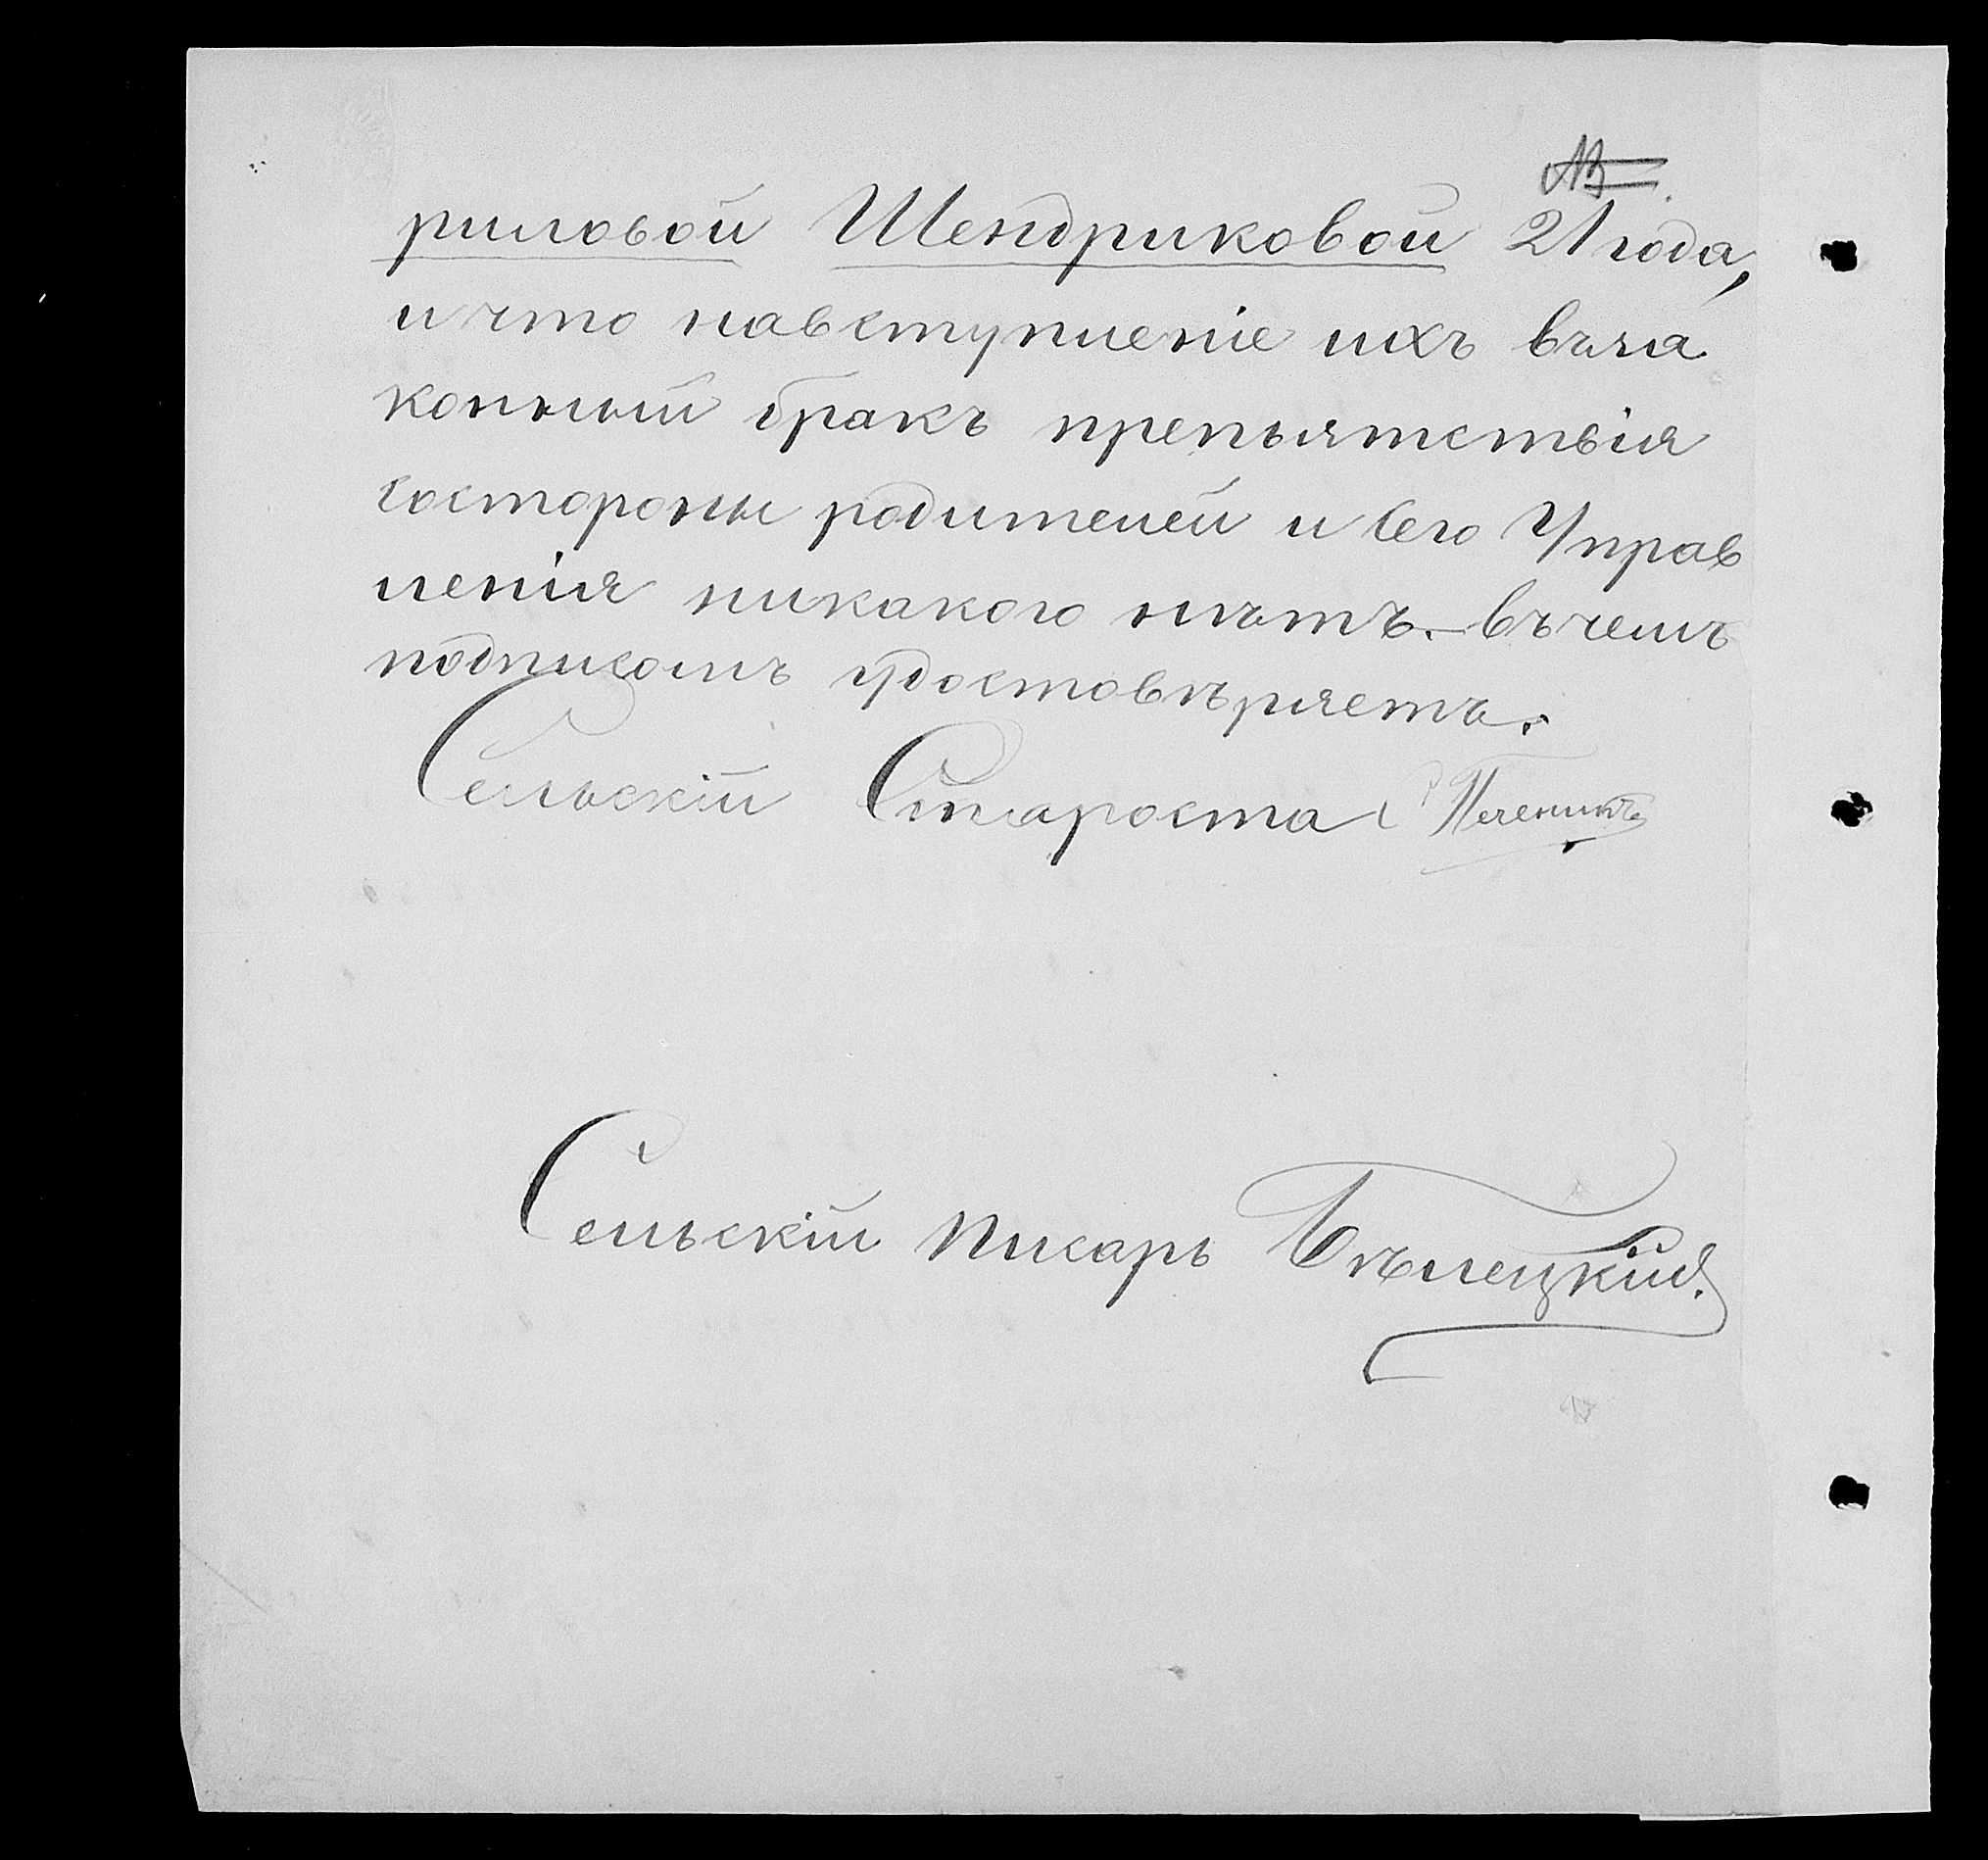 риловой Шендриковой 21 года,
и что навступление ихъ въза
конный бракъ препьятствія
состороны родителей и Сего Управ
ленія никакого нѣтъ. – въ чемъ
подписомъ удостовѣряетъ.
Сельскій Староста
Сельскій Писарь Бѣлецкій.